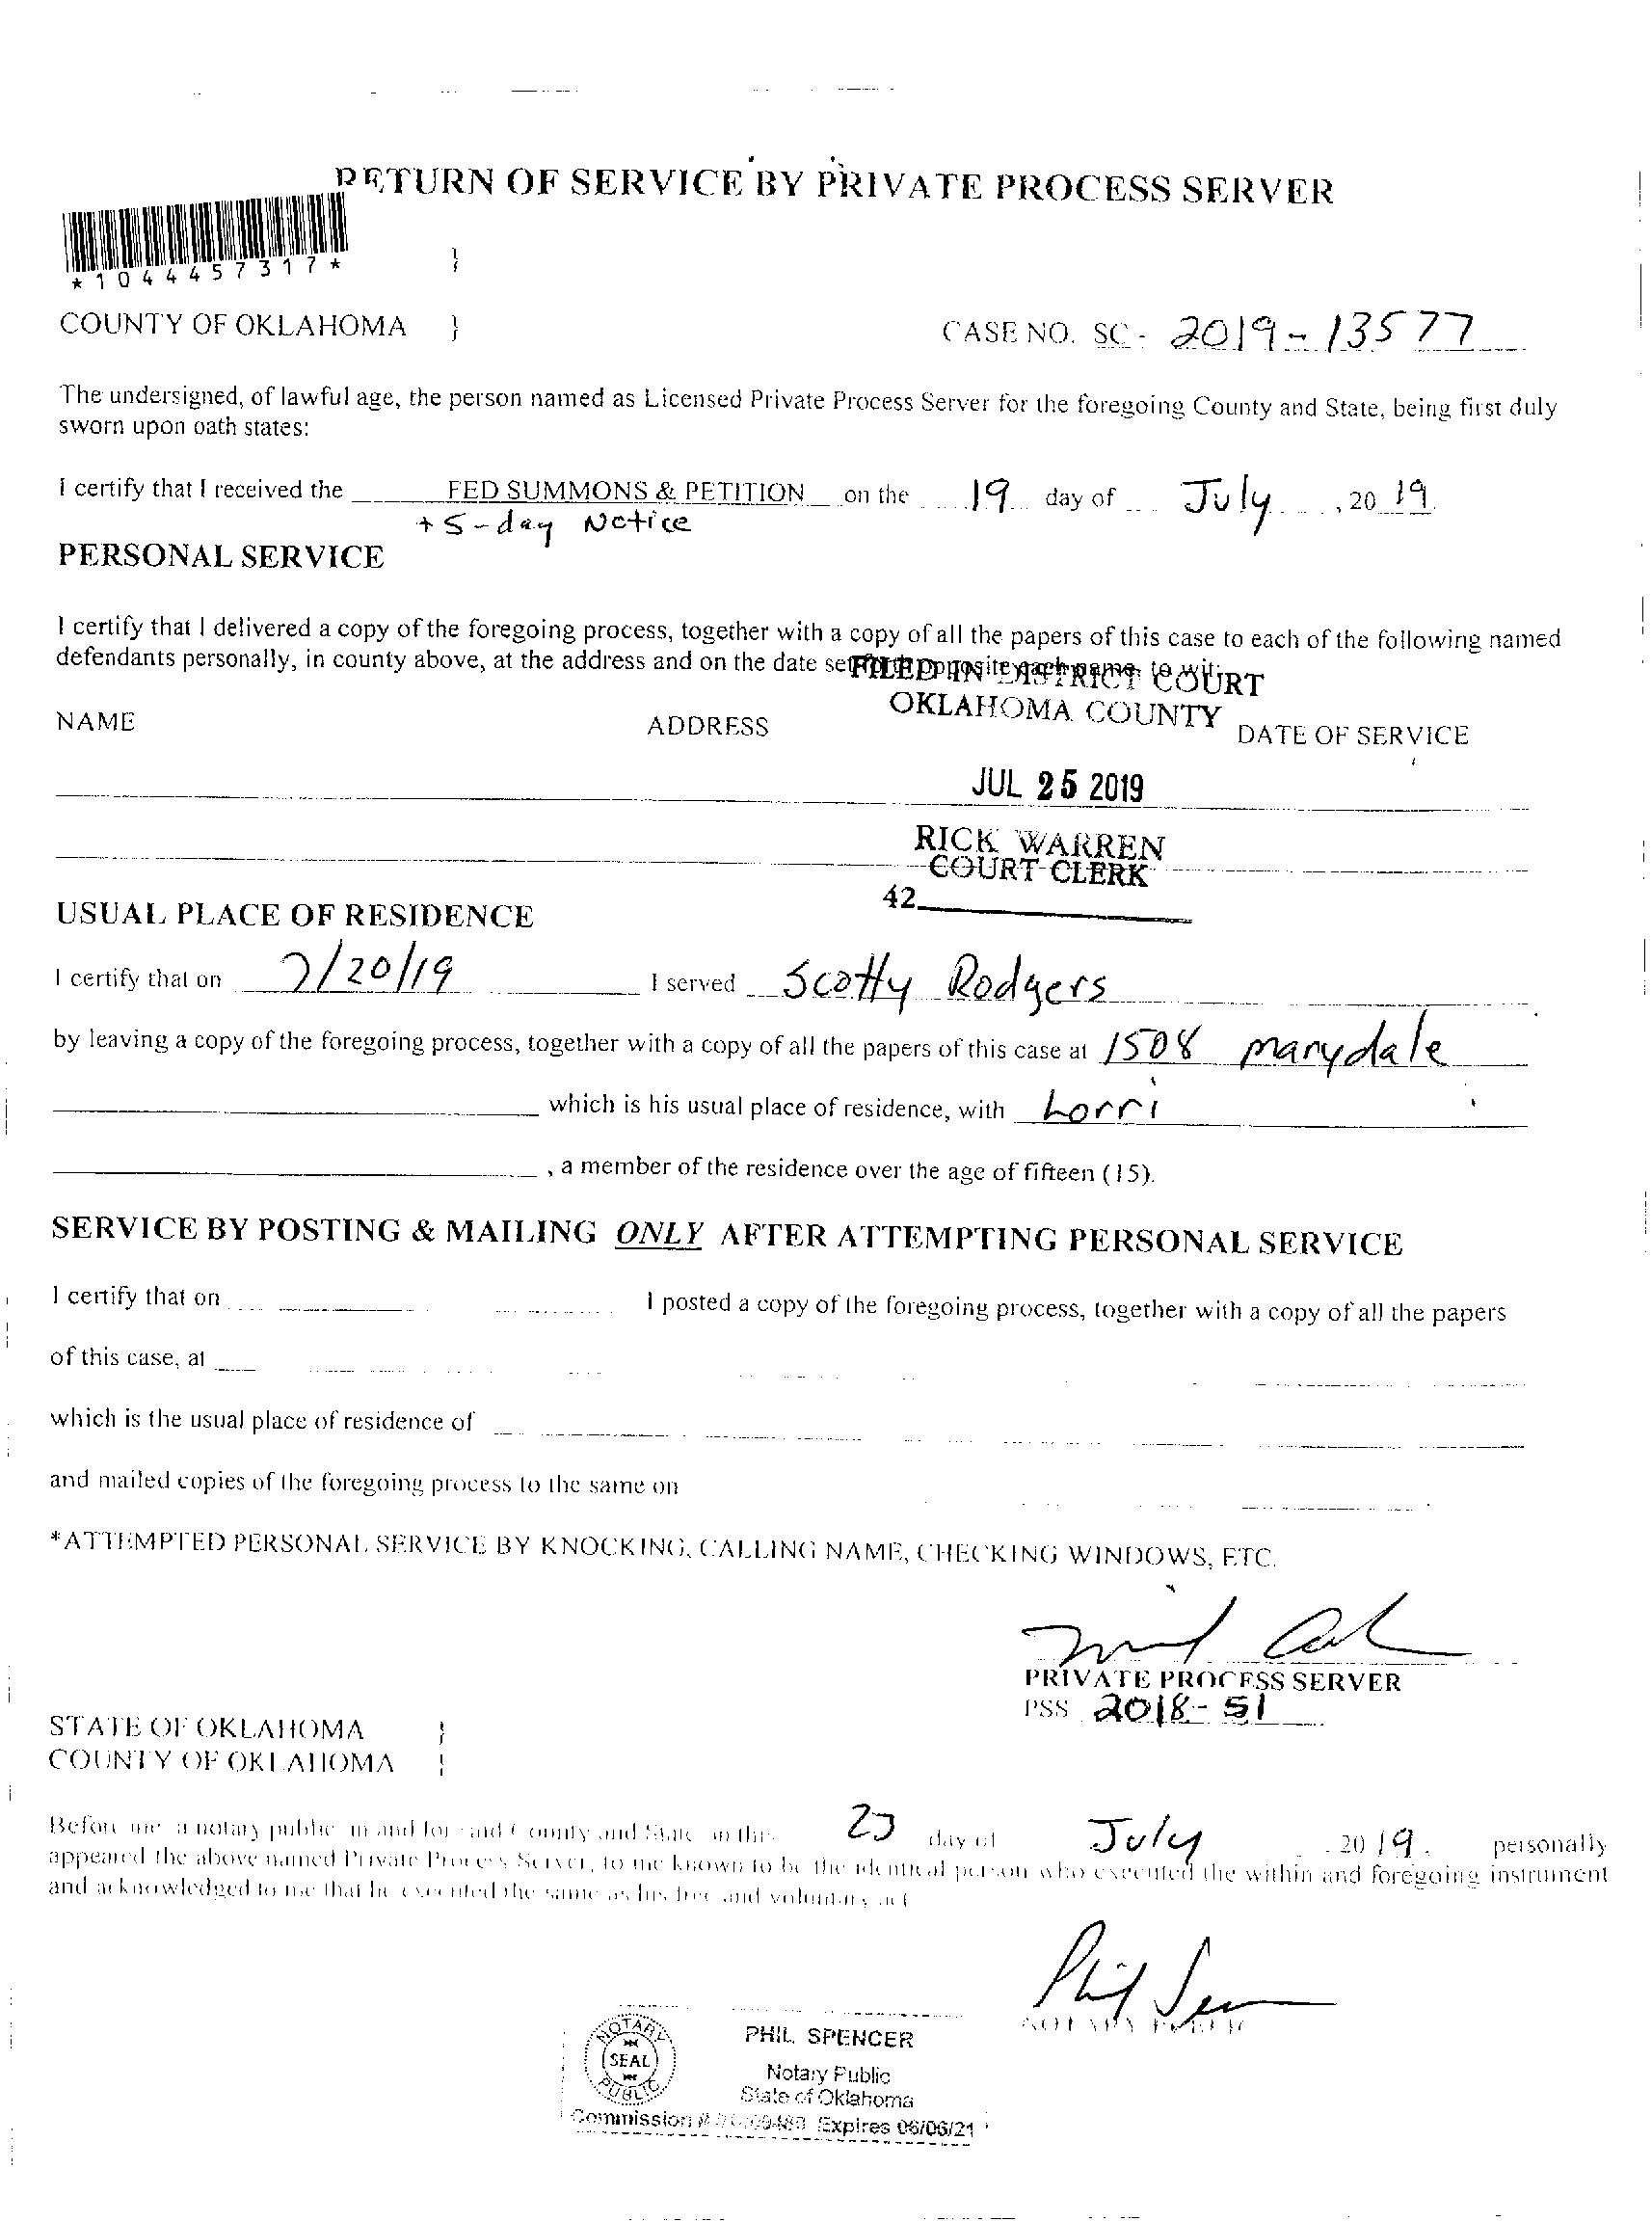 RETURN OF SERVICE BY PRIVATE PROCESS SERVER
*1044457317* }
COUNTY OF OKLAHOMA } CASE NO. SC - 2019-13577
The undersigned, of lawful age, the person named as Licensed Private Process Server for the foregoing County and State, being first duly
sworn upon oath states:
I certify that I received the FED SUMMONS & PETITION on the 19 day of July, 20 19.
+ 5-day Notice
PERSONAL SERVICE
I certify that I delivered a copy of the foregoing process, together with a copy of all the papers of this case to each of the following named
defendants personally, in county above, at the address and on the date set forth opposite each name, to wit:
FILED IN DISTRICT COURT
OKLAHOMA COUNTY
NAME ADDRESS DATE OF SERVICE
JUL 25 2019
RICK WARREN
COURT CLERK
42
USUAL PLACE OF RESIDENCE
I certify that on 7/20/19 I served Scotty Rodgers
by leaving a copy of the foregoing process, together with a copy of all the papers of this case at 1508 marydale
which is his usual place of residence, with Lorri
, a member of the residence over the age of fifteen (15).
SERVICE BY POSTING & MAILING ONLY AFTER ATTEMPTING PERSONAL SERVICE
I certify that on I posted a copy of the foregoing process, together with a copy of all the papers
of this case, at
which is the usual place of residence of
and mailed copies of the foregoing process to the same on .
*ATTEMPTED PERSONAL SERVICE BY KNOCKING, CALLING NAME, CHECKING WINDOWS, ETC.
PRIVATE PROCESS SERVER
PSS 2018-51
STATE OF OKLAHOMA }
COUNTY OF OKLAHOMA }
Before me a notary public in and for said County and State on this 23 day of July, 2019, personally
appeared the above named Private Process Server, to me known to be the identical person who executed the within and foregoing instrument
and acknowledged to me that he executed the same as his free and voluntary act
NOTARY PUBLIC
NOTARY SEAL PUBLIC
PHIL SPENCER
Notary Public
State of Oklahoma
Commission # Expires 06/06/21